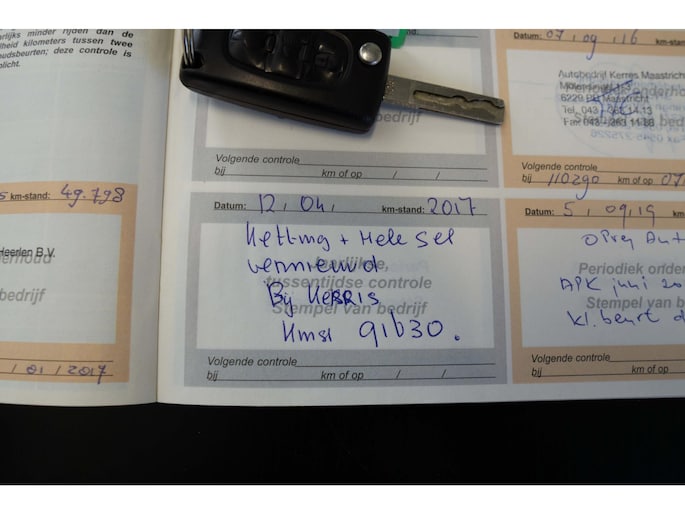 rlijks minder rijden dan de
lheid kilometers tussen twee
oudsbeurten; deze controle is
plicht.
km-stand: 49.798
Heerlen B.V.
erhoud
bedrijf
/ 01 / 2017
Volgende controle
bij km of op / /
Datum: 12, 04, km-stand: 2017
Ketting + Hele set
vernieuwd
Jaarlijkse,
tussentijdse controle
Bij KERRIS
Stempel van bedrijf
Kmst 91630.
Volgende controle
bij km of op / /
Datum: 07, 09, 16 km-st
Autobedrijf Kerres Maastricht
Tel. 043 - 363 14 13
Fax 043 - 363 11 36
Volgende controle
bij 110290 km of op 07/
Datum: 5, 09, 19 km-s
Periodiek onder
APK juni 20
Stempel van b
Kl. beurt d
Volgende controle
bij km of op